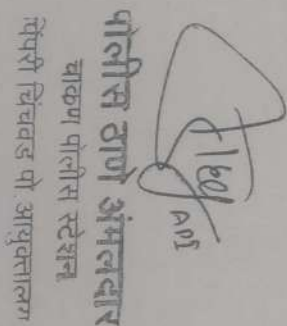 API
पोलीस ठाणे अंमलदार
चाकण पोलीस स्टेशन
पिंपरी चिंचवड पो.आयुक्तालय